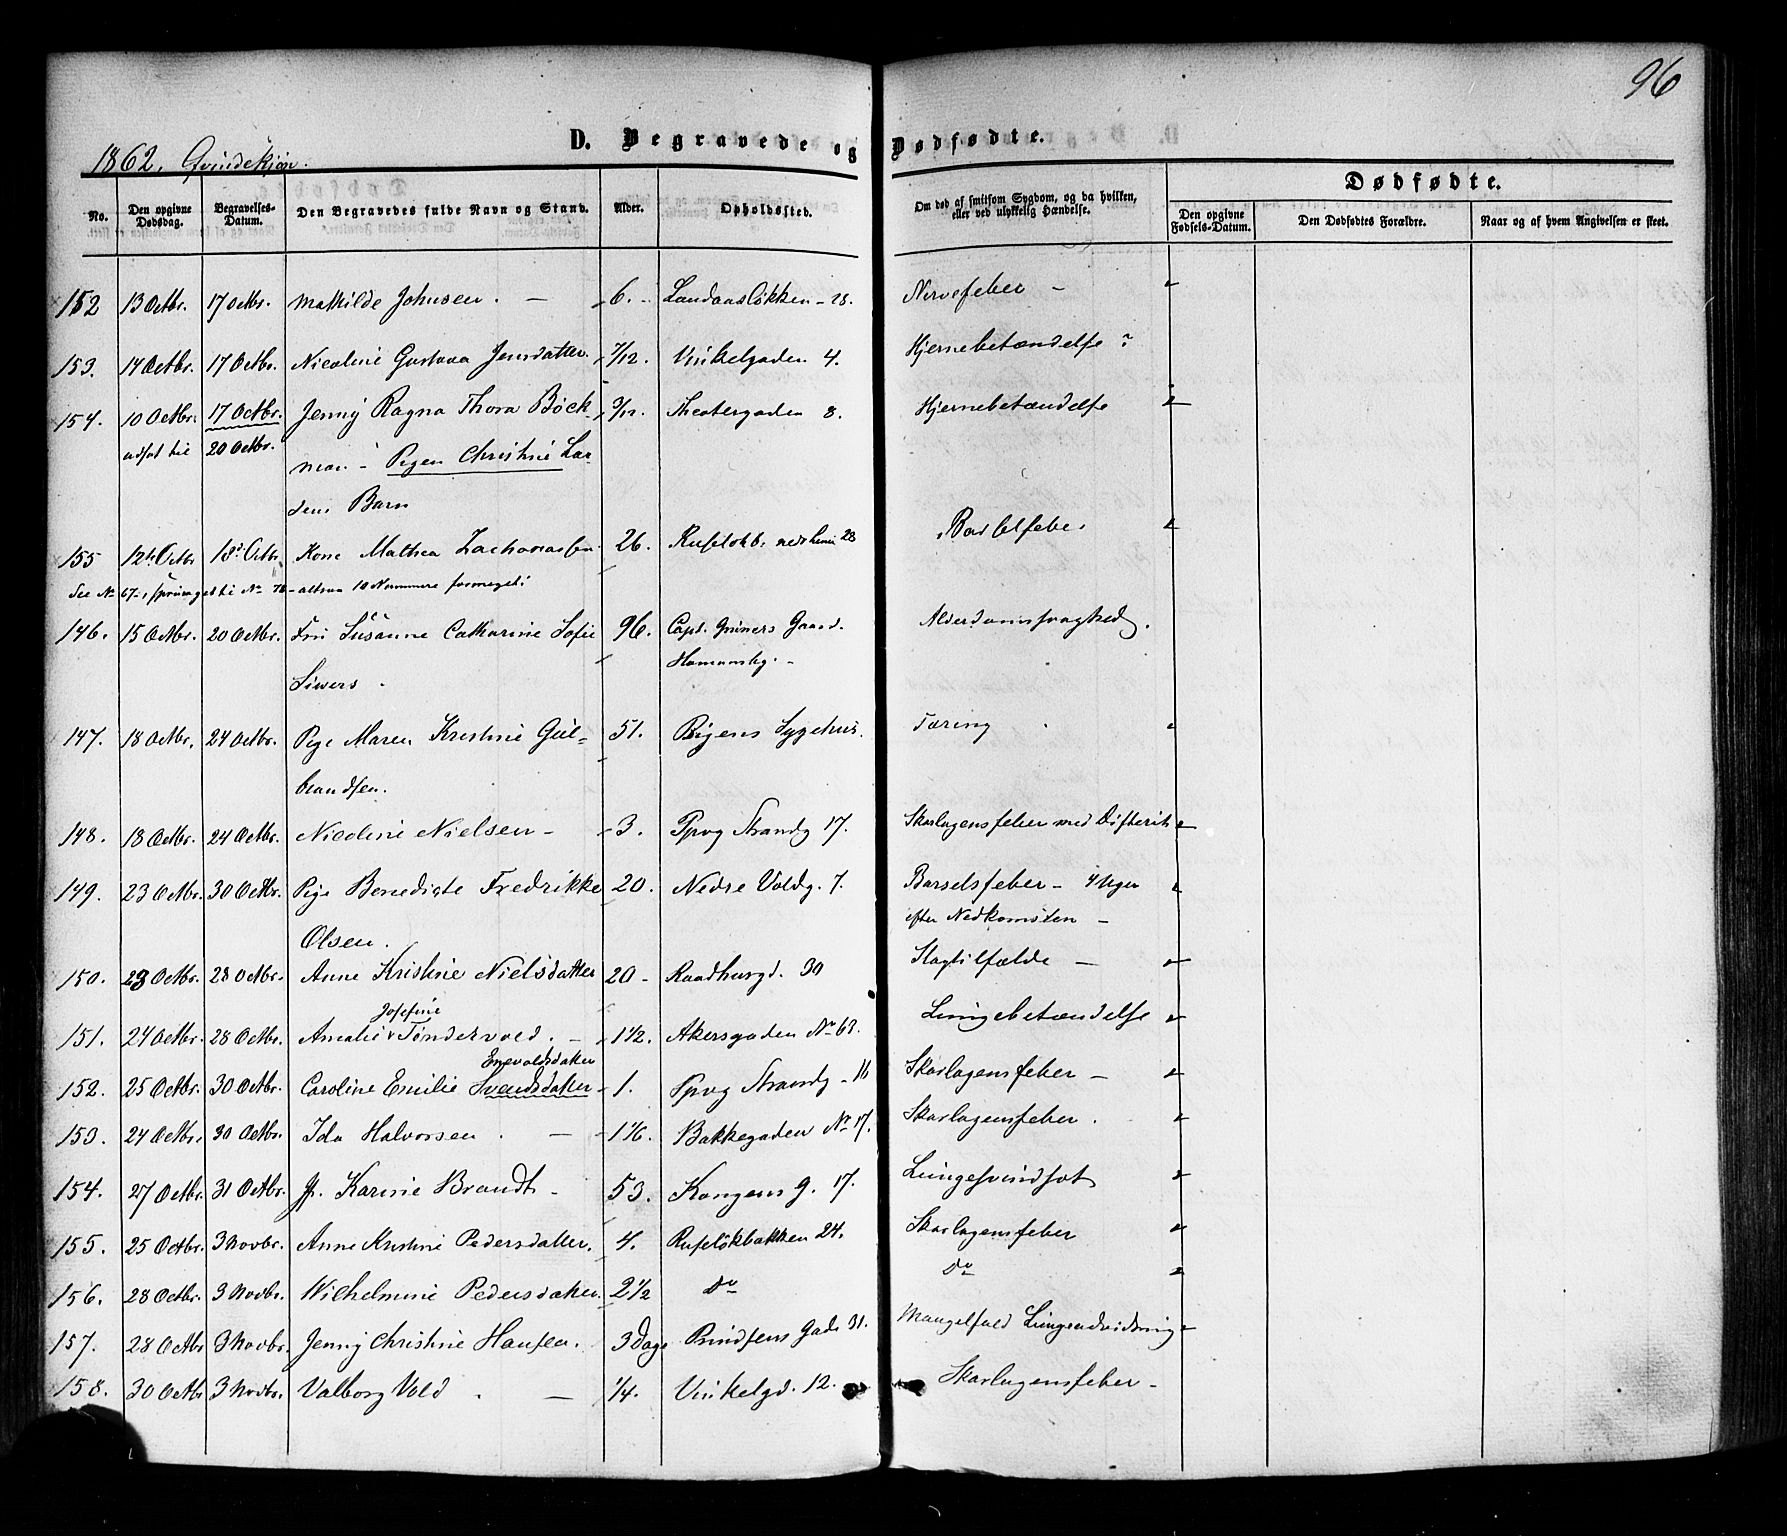 96
D. Begravede og Dødfødte.
1862. Qvindekjøn.
No. Den opgivne Dødsdag. Begravelses-Datum. Den Begravedes fulde Navn og Stand. Alder. Opholdssted. Om død af smitsom Sygdom, og da hvilken, eller ved ulykkelig Hændelse. Dødfødte.
Den opgivne Fødsels-Datum. Den Dødfødtes Forældre. Naar og af hvem Angivelsen er skeet.
152 13 Octbr. 17 Octbr. Mathilde Johnsen. - 6. Landaasløkken - 28. Nervefeber -
153. 14 Octbr. 17 Octbr. Nicoline Gustava Jensdatter 7/12. Vinkelgaden 4. Hjernebetændelse ?
154. 10 Octbr. 17 Octbr. Jenny Ragna Thora Böck- 3/12. Theatergaden 8. Hjernebetændelse
udsat til 20 Octbr. man - Pigen Christine Lar-
sens Barn
155 12te Octbr 18de Octbr. Kone Mathea Zachariassen 26. Barselfeber
See No 67 - sprunget til No 78 - altsaa 10 Nummere formeget
146. 15 Octbr. 20 Octbr. Fru Susanne Catharine Sofie 96. Capt. Gruners Gaard. Alderdomssvaghed.
Siwers. Homansby. -
147. 18 Octbr. 24 Octbr. Pige Maren Kristine Gul- 51. Rigens Sygehus. Tæring
brandsen.
148. 18 Octbr. 24 Octbr. Nicoline Nielsen - 3. Ppvg Strandg 17. Skarlagensfeber med Difterit
149. 23 Octbr. 30 Octbr. Pige Benedicte Fredrikke 20. Nedre Voldg. 7. Barselsfeber - 4 Uger
Olsen. efter Nedkomsten -
150. 23 Octbr. 28 Octbr. Anne Kristine Nielsdatter 20 - Raadhusgd. 30 Slagtilfælde -
Josefine
151. 24 Octbr. 28 Octbr. Amalie Tøndervold. - 1 1/2. Akersgaden No 63. Lungebetændelse
Enevoldsdatter
152. 25 Octbr. 30 Octbr. Caroline Emilie Svendsdatter 1. Ppvg Strandg - 16 Skarlagensfeber -
153. 24 Octbr. 30 Octbr. Ida Halvorsen. - 1 1/6. Bakkegaden No 17. Skarlagensfeber.
154. 27 Octbr. 31 Octbr. Jfr. Karine Brandt - 53. Kongens g. 17. Lungesvindsot
155. 25 Octbr. 3 Novbr. Anne Kristine Pedersdatter. 4. Rufeløkbakken 24. Skarlagensfeber
156. 28 Octbr. 3 Novbr. Wilhelmine Pedersdatter. 2 1/2 Do Do
157. 28 Octbr 3 Novbr. Jenny Christine Hansen. 3 Dage Prindsens Gade 31. Mangelfuld Lungeudvidning
158. 30 Octbr 3 Novbr. Valborg Vold. - 1/4. Vinkelgd. 12. Skarlagensfeber -